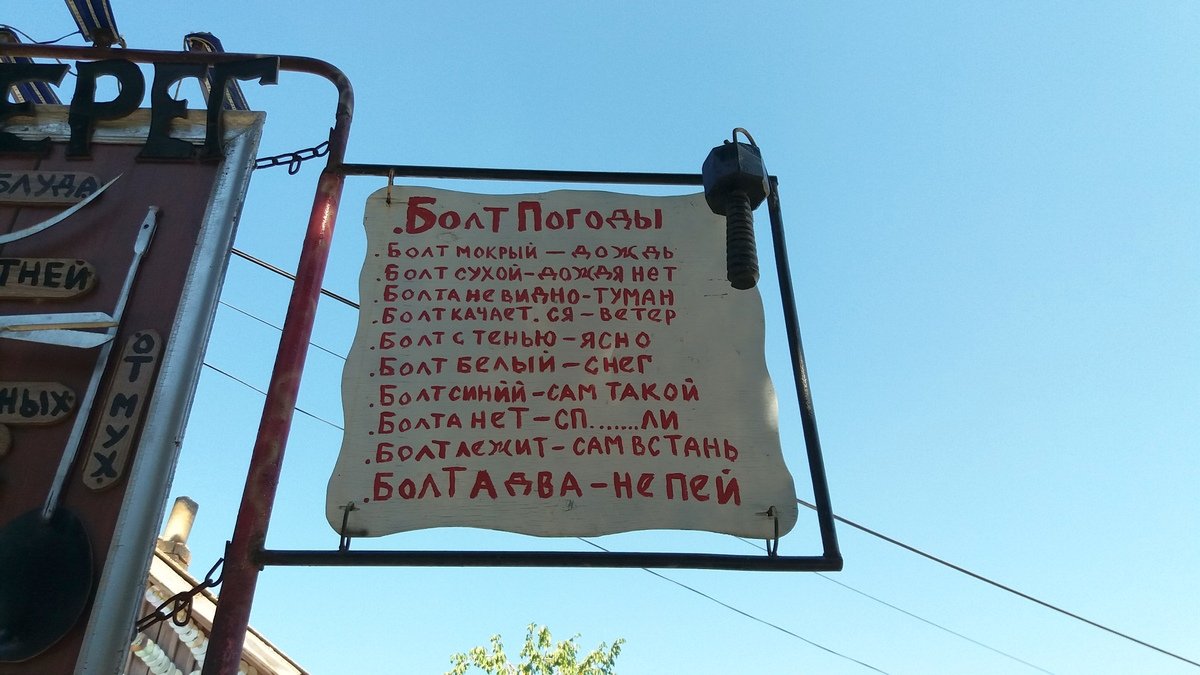 ЕРЕГ
БЛУДА
ТНЕЙ
ОТ МУХ
НЫХ
.БОЛТ ПОГОДЫ
.БОЛТ МОКРЫЙ – ДОЖДЬ
.БОЛТ СУХОЙ-ДОЖДЯ НЕТ
.БОЛТА НЕ ВИДНО-ТУМАН
.БОЛТ КАЧАЕТ.СЯ – ВЕТЕР
.БОЛТ С ТЕНЬЮ – ЯСНО
.БОЛТ БЕЛЫЙ – СНЕГ
.БОЛТ СИНИЙ – САМ ТАКОЙ
.БОЛТА НЕТ – СП.......ЛИ
.БОЛТ ЛЕЖИТ – САМ ВСТАНЬ
.БОЛТА ДВА – НЕ ПЕЙ